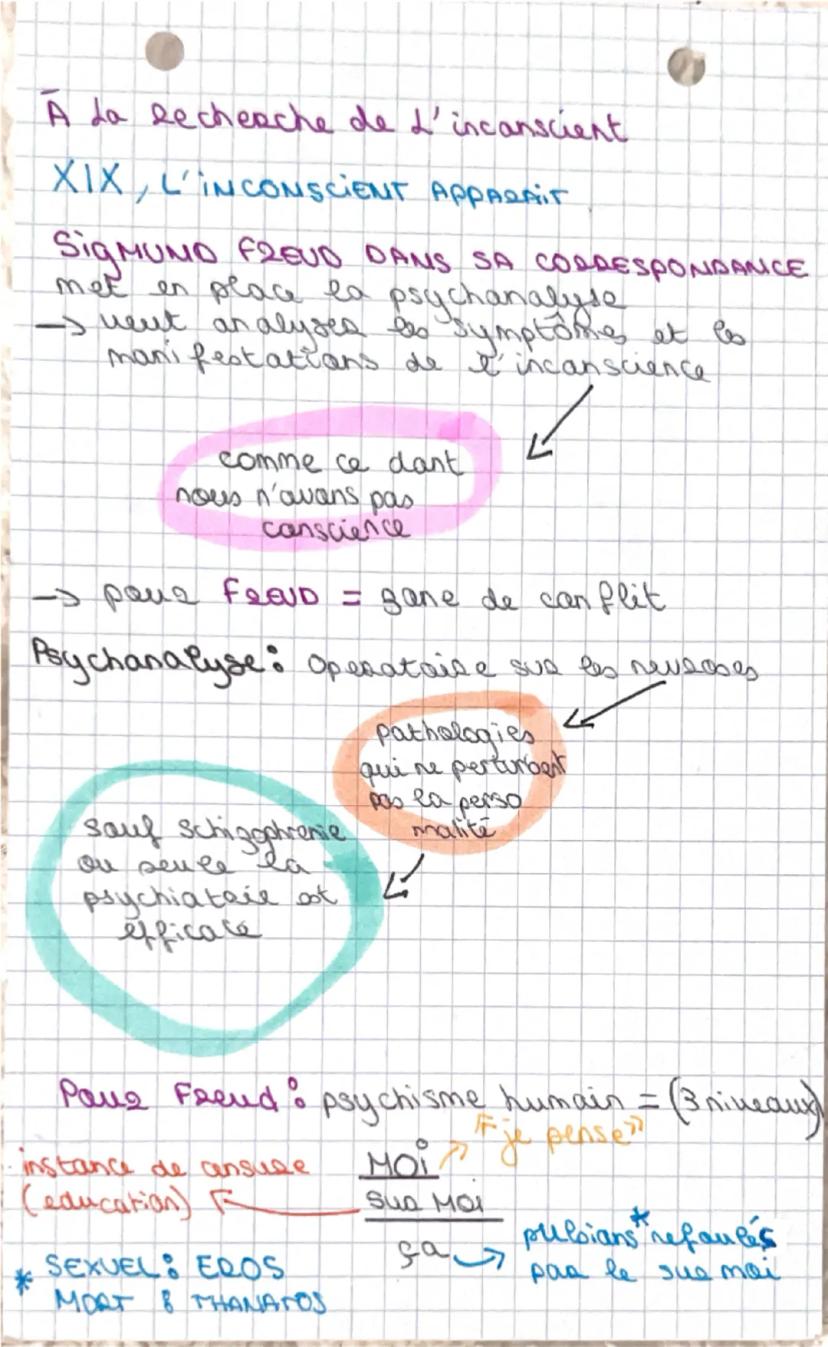 À La Recherche de L'inconscient
XIX, L'INCONSCIENT APPARAIT
SIGMUND FREUD DANS SA CORRESPONDANCE
met en place la psychanalyse
→ veut analyser les symptômes et les
manifestations de l'inconscience
comme ce dont
nous n'avons pas
conscience
→ pour FREUD = zone de conflit
Psychanalyse: Operatoire sur les nevroses
pathologies
qui ne perturbent
pas la perso
nalité
sauf schizophrenie
ou seule la
psychiatrie est
éfficace
Pour Freud: psychisme humain = (3 niveaux)
MOI → "je pense"
instance de censure
(education) ← SUR MOI
ça → pulsions* refoulés
par le sur moi
* SEXUEL: EROS
MORT : THANATOS